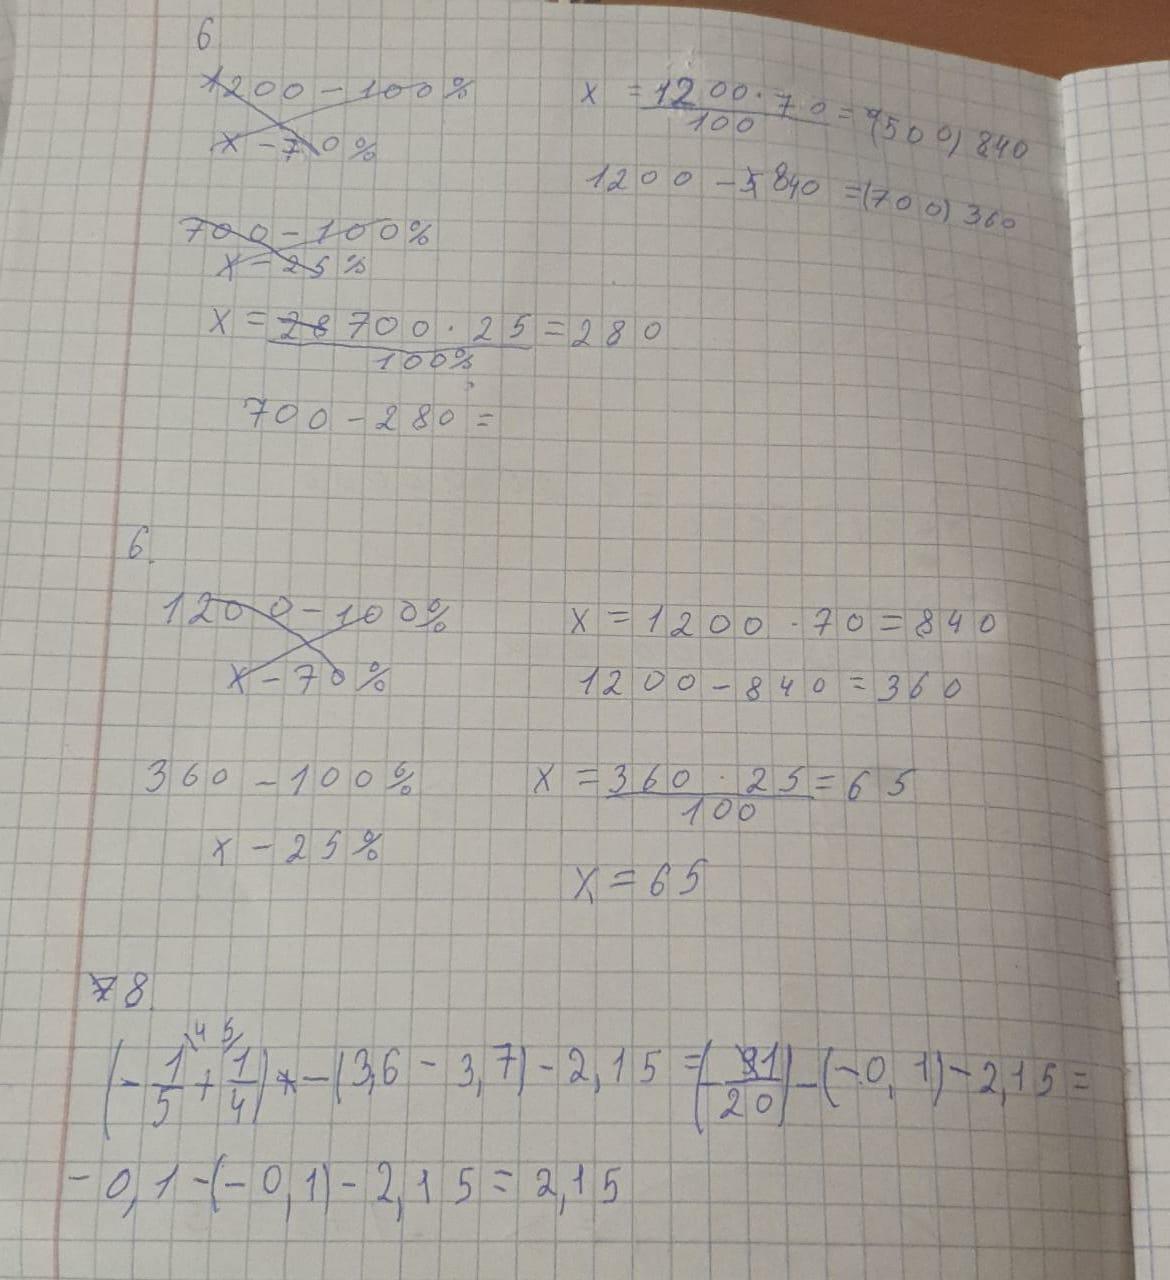 6
1200 - 100%
x - 70%
x = 1200 · 70 / 100 = (500) 840
1200 - 840 = (700) 360
700 - 100%
x - 25%
x = 700 · 25 / 100% = 280
700 - 280 =
6.
1200 - 100%
x - 70%
x = 1200 · 70 = 840
1200 - 840 = 360
360 - 100%
x - 25%
x = 360 · 25 / 100 = 65
x = 65
8.
(- 1/5 \4 + 1/4 5/) - (3,6 - 3,7) - 2,15 = (- 1/20) - (-0,1) - 2,15 =
- 0,1 - (-0,1) - 2,15 = 2,15